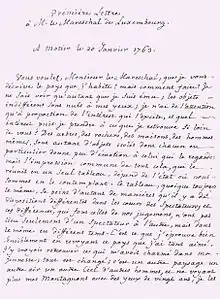 Premiere Lettre
à M. le Maréchal de Luxembourg.
A Motier le 20 Janvier 1763.
Vous voulez, Monsieur le Maréchal, que je vous
décrive le pays que j'habite? mais comment faire? Je
ne sais voir qu'autant que je suis ému; les objets
indifférens sont nuls à mes yeux; je n'ai de l'attention
qu'à proportion de l'intérest qui l'excite, et quel
intérest puis-je prendre à ce que je retrouve si loin
de vous? Des arbres, des rochers, des maisons, des hommes
mêmes, sont autant d'objets isolés dont chacun en
particulier donne peu d'émotion à celui qui le regarde:
mais l'impression commune de tout cela, qui le
réunit en un seul tableau, dépend de l'état où nous
sommes en le contemplant. Ce tableau, quoique toujours
le même, se peint d'autant de manières qu'il y a de
dispositions différentes dans les cœurs des spectateurs; et
ces différences, qui font celles de nos jugemens, n'ont pas
lieu seulement d'un spectateur à l'autre, mais dans
le même en différens tems. C'est ce que j'éprouve bien
sensiblement en revoyant ce pays que j'ai tant aimé.
J'y croyois retrouver ce qui m'avoit charmé dans ma
jeunesse; tout est changé; c'est un autre paysage, un
autre air, un autre Ciel, d'autres hommes, et ne voyant
plus mes Montagnons avec des yeux de vingt ans, je les